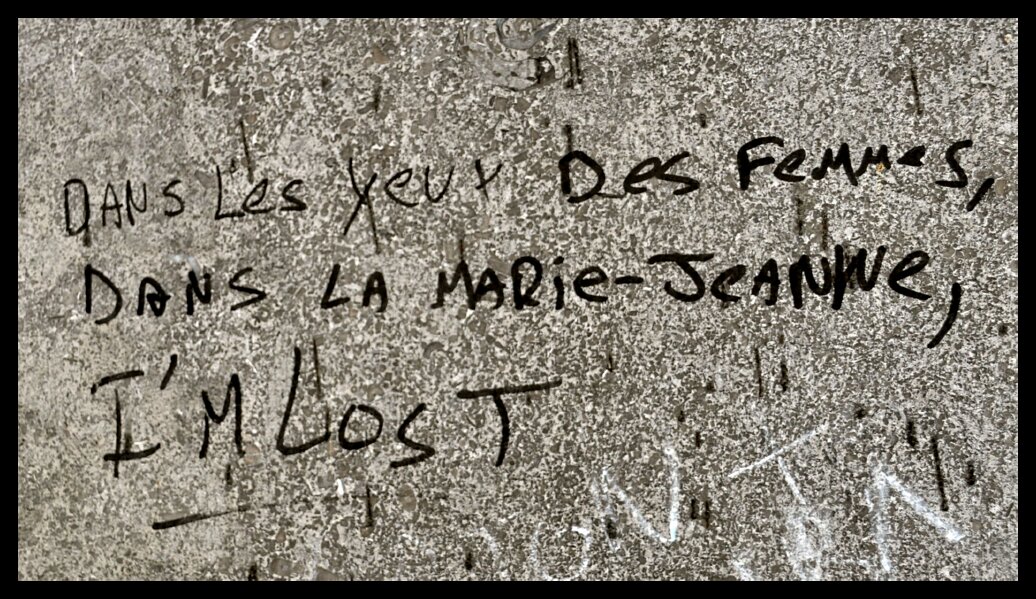 DANS Les YeuX Des Femmes,
DANS LA MARie-JeANNe,
I'M LosT